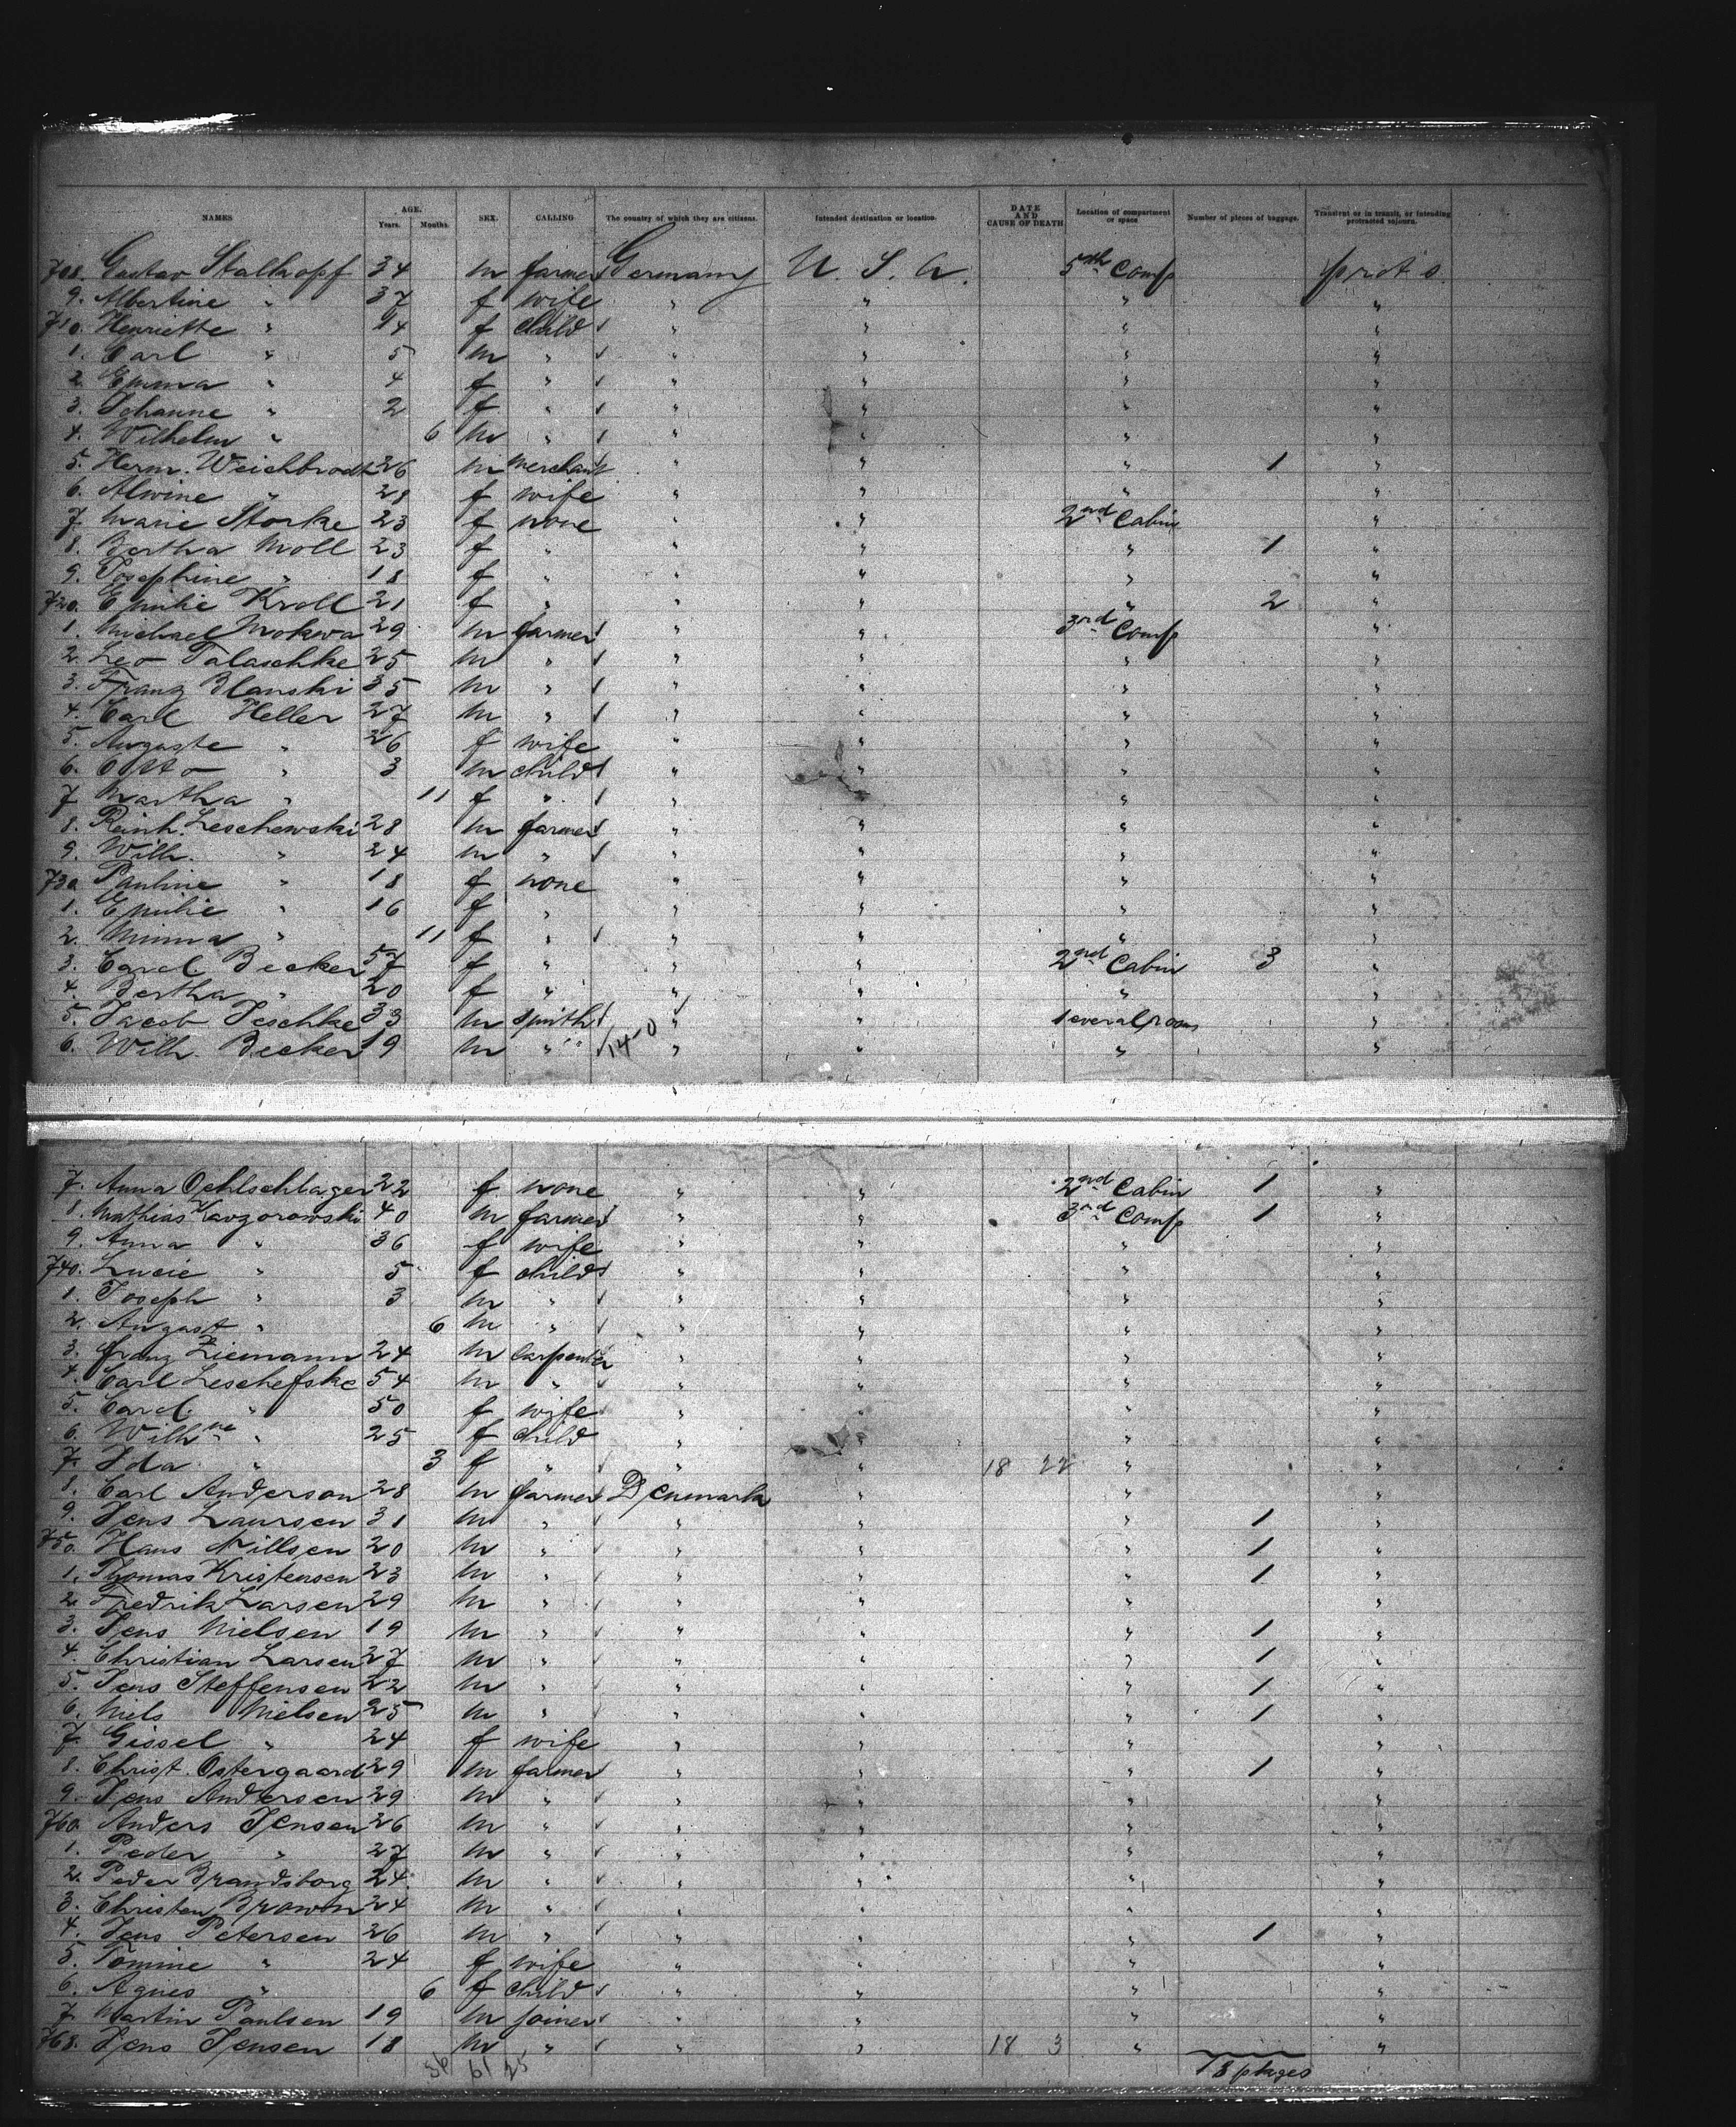 NAMES AGE. Years. Months. SEX. CALLING The country of which they are citizens. Intended destination or location. DATE AND CAUSE OF DEATH Location of compartment or space Number of pieces of baggage. Transient or in transit, or intending protracted sojourn.
708. Gustav Stallkopf 34 m farmer Germany U. S. A. 5th Comp prot s
9. Albertine " 37 f wife " " " "
710. Henriette " 14 f child " " " "
1. Carl " 5 m " " " " "
2. Emma " 4 f " " " " "
3. Johanne " 2 f " " " " "
4. Wilhelm " 6 m " " " " "
5. Herm. Weichbrodt 26 m merchant " " " 1 "
6. Alwine " 28 f wife " " " "
7. Marie Storke 23 f none " " 2nd Cabin "
8. Bertha Moll 23 f " " " " 1 "
9. Josephine " 18 f " " " " "
720. Emilie Kroll 21 f " " " " 2 "
1. Michael Mokwa 29 m farmer " " 3rd Comp "
2. Leo Talaschke 25 m " " " " "
3. Franz Blanski 35 m " " " " "
4. Carl Heller 27 m " " " " "
5. Auguste " 26 f wife " " " "
6. Otto " 3 m child " " " "
7 Martha " 11 f " " " " "
8. Reinh. Leschewski 28 m farmer " " " "
9. Wilh. " 24 m " " " " "
730 Pauline " 18 f none " " " "
1. Emilie " 16 f " " " " "
2. Minna " 11 f " " " " "
3. Carol. Becker 57 f " " " 2nd Cabin 3 "
4. Bertha " 20 f " " " " "
5. Jacob Jeschke 33 m smith " " several rooms "
6. Wilh. Becker 19 m " 14-0 " " " "
7. Anna Oehlschlager 22 f none " " 2nd Cabin 1 "
8. Mathias Kavgorowski 40 m farmer " " 3rd Comp 1 "
9. Anna " 36 f wife " " " "
740. Lucie " 5 f child " " " "
1. Joseph " 3 m " " " " "
2. August " 6 m " " " " "
3. Franz Ziemann 24 m carpenter " " " "
4. Carl Leschefske 54 m " " " " "
5. Carol. " 50 f wife " " " "
6. Wilhne " 25 f child " " " "
7. Ida " 3 f " " " 18 22 " "
8. Carl Anderson 28 m farmer Denmark " " "
9. Jens Laursen 31 m " " " " 1 "
750. Hans Nillsen 20 m " " " " 1 "
1. Thomas Kristensen 23 m " " " " 1 "
2. Fredrik Larsen 29 m " " " " "
3. Jens Nielsen 19 m " " " " 1 "
4. Christian Larsen 27 m " " " " 1 "
5. Jens Steffensen 22 m " " " " 1 "
6. Niels Nielsen 25 m " " " " 1 "
7. Gissel " 24 f wife " " " "
8. Christ. Ostergaard 29 m farmer " " " 1 "
9. Jens Andersen 29 m " " " " "
760. Anders Jensen 26 m " " " " "
1. Peder " 27 m " " " " "
2. Peder Brandsborg 24 m " " " " "
3. Christen Brown 24 m " " " " "
4. Jens Petersen 26 m " " " " 1 "
5. Tomine " 24 f wife " " " "
6. Agnes " 6 f child " " " "
7 Martin Paulsen 19 m joiner " " " "
768. Jens Jensen 18 m " " " 18 3 " "
56 61 25